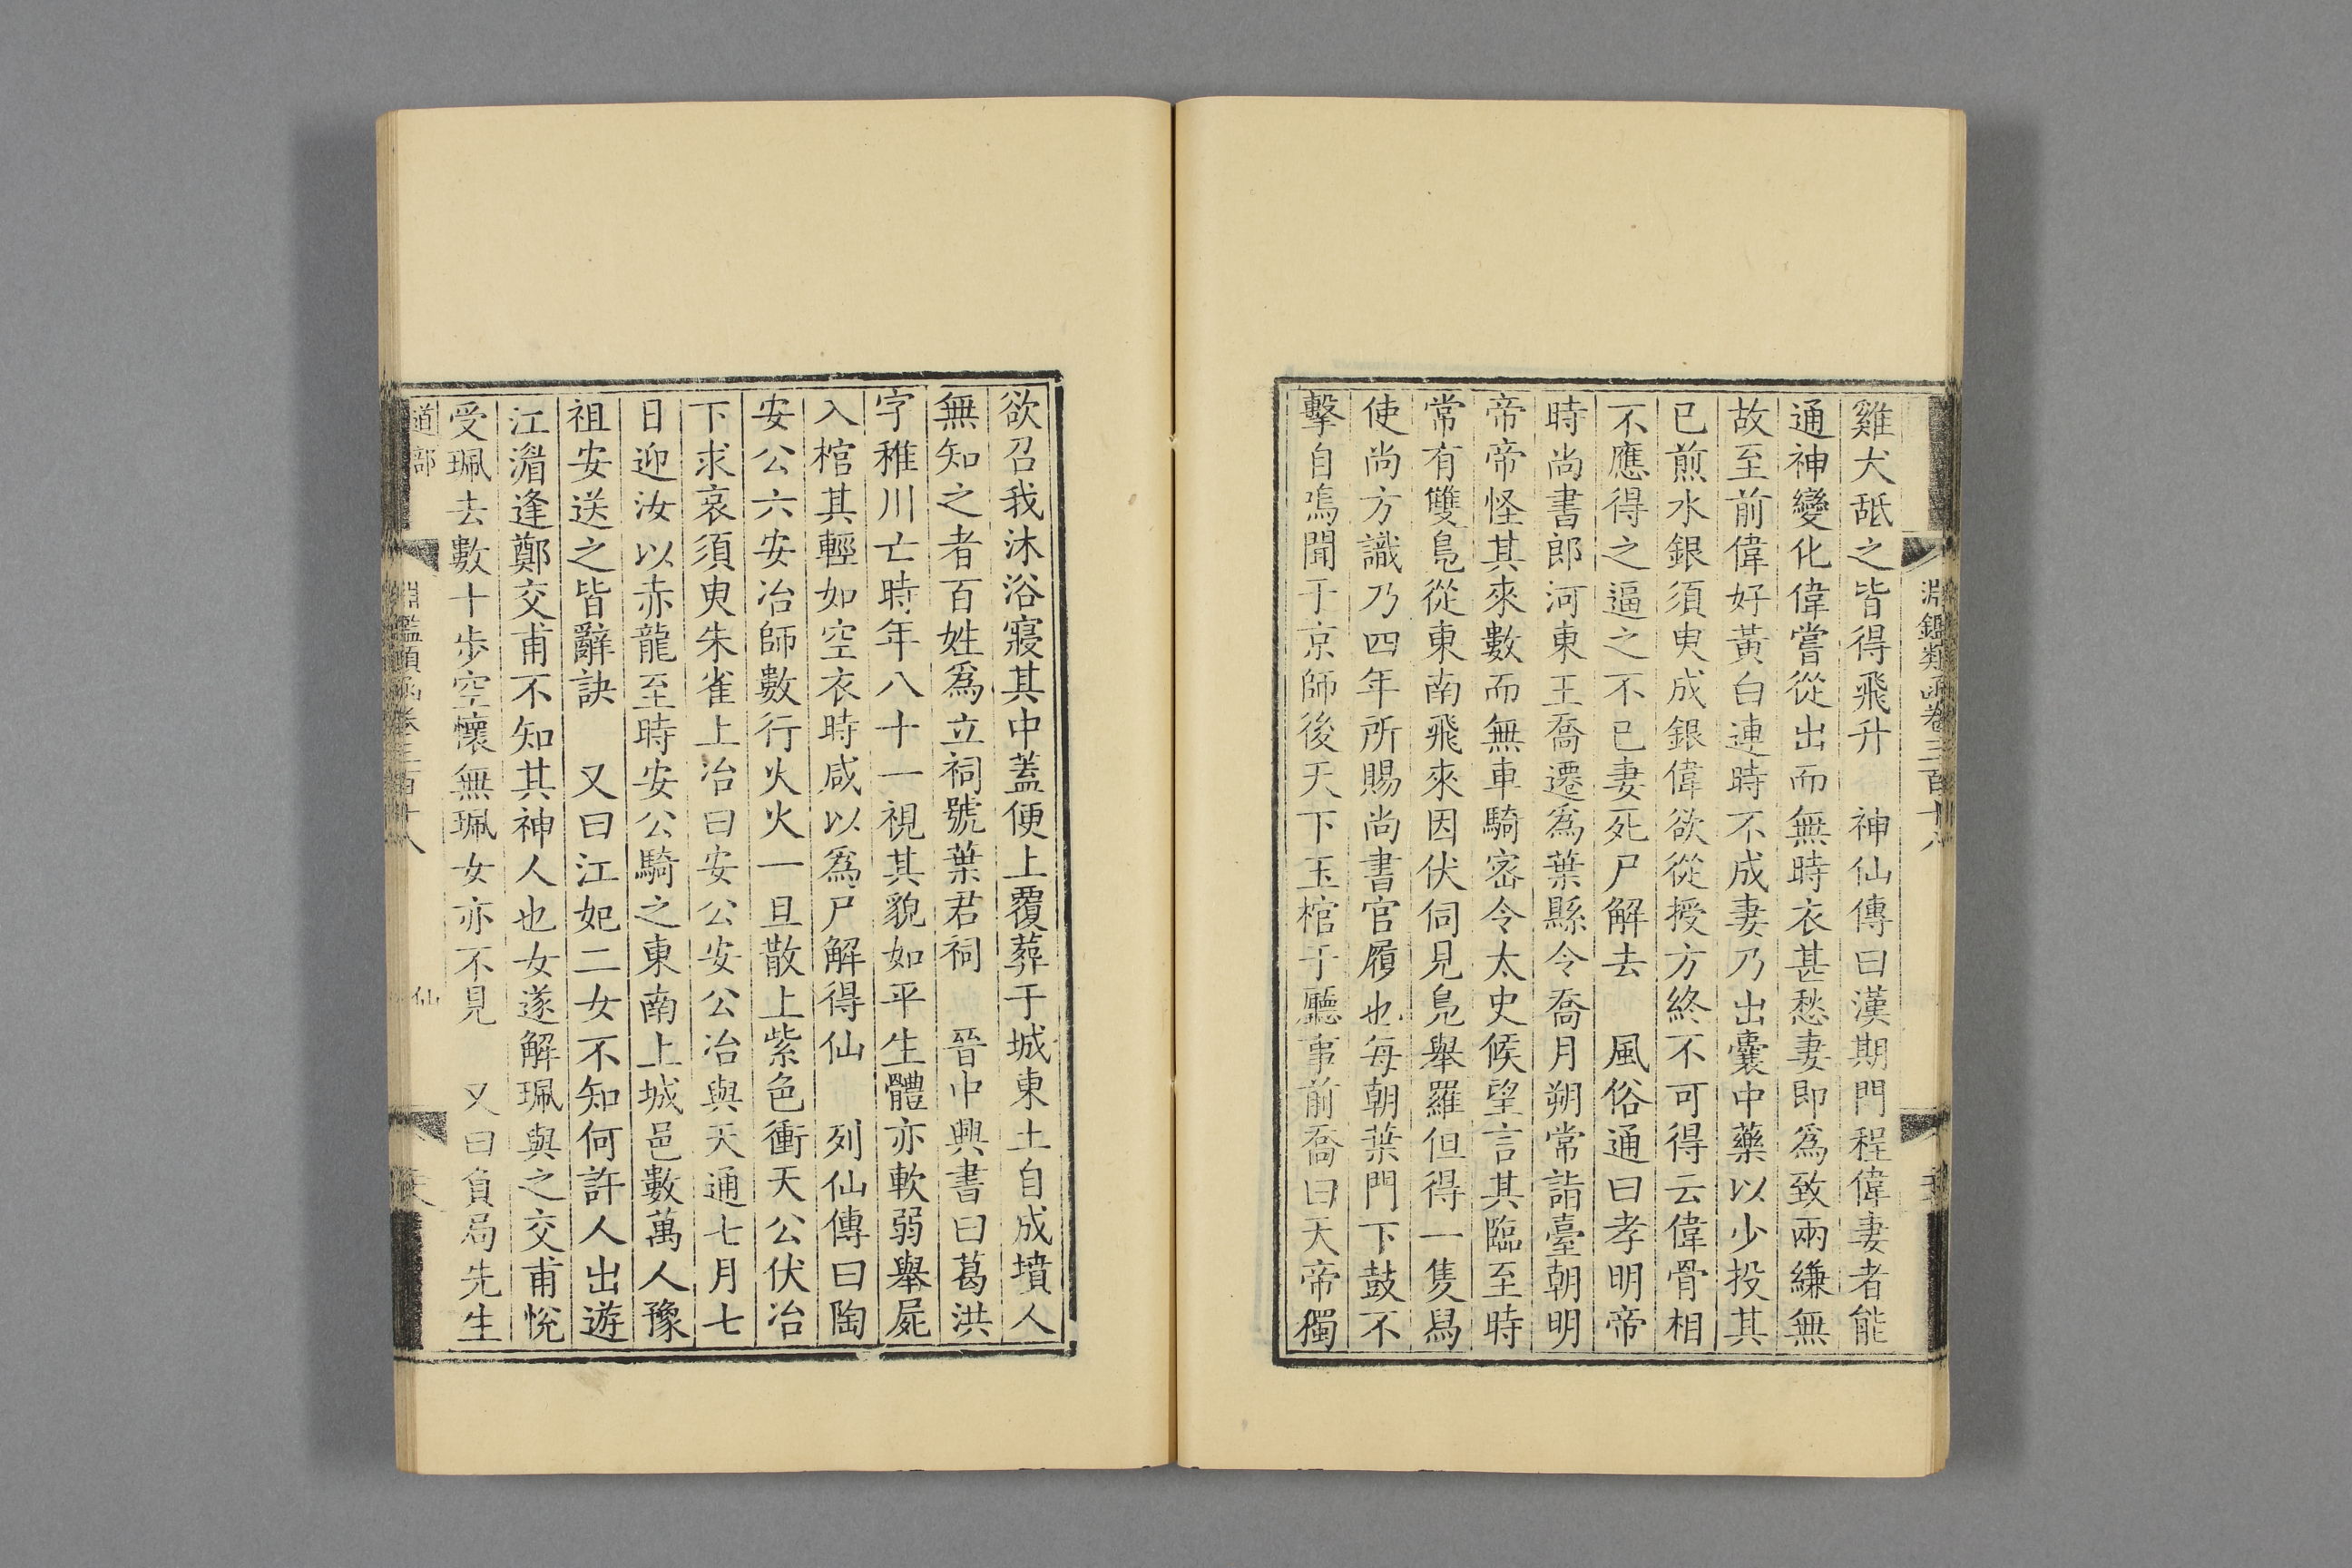 淵鑑類函卷三百十八
雞犬舐之皆得飛升　神仙傳曰漢期門程偉妻者能
通神變化偉嘗從出而無時衣甚愁妻即爲致兩縑無
故至前偉好黃白連時不成妻乃出囊中藥以少投其
已煎水銀須臾成銀偉欲從授方終不可得云偉骨相
不應得之逼之不已妻死尸解去　風俗通曰孝明帝
時尚書郎河東王喬遷爲葉縣令喬月朔常詣臺朝明
帝帝怪其來數而無車騎密令太史候望言其臨至時
常有雙鳧從東南飛來因伏伺見鳧舉羅但得一隻舄
使尚方識乃四年所賜尚書官履也每朝葉門下鼓不
擊自鳴聞于京師後天下玉棺于廳事前喬曰天帝獨
欲召我沐浴寢其中蓋便上覆葬于城東土自成墳人
無知之者百姓爲立祠號葉君祠　晉中興書曰葛洪
字稚川亡時年八十一視其貌如平生體亦軟弱舉屍
入棺其輕如空衣時咸以爲尸解得仙　列仙傳曰陶
安公六安冶師數行火火一旦散上紫色衝天公伏冶
下求哀須臾朱雀上冶曰安公安公冶與天通七月七
日迎汝以赤龍至時安公騎之東南上城邑數萬人豫
祖安送之皆辭訣　又曰江妃二女不知何許人出遊
江湄逢鄭交甫不知其神人也女遂解珮與之交甫悅
受珮去數十步空懷無珮女亦不見　又曰負局先生
道部
淵鑑類函卷三百十八
仙